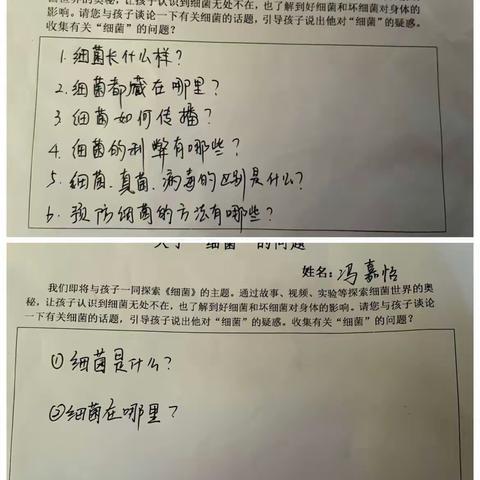 秘世界的奥秘，让孩子认识到细菌无处不在，也了解到好细菌和坏细菌对身体的
影响。请您与孩子谈论一下有关细菌的话题，引导孩子说出他对“细菌”的疑惑。
收集有关“细菌”的问题？
1.细菌长什么样？
2.细菌都藏在哪里？
3.细菌如何传播？
4.细菌的利弊有哪些？
5.细菌、真菌、病毒的区别是什么？
6.预防细菌的方法有哪些？
关于“细菌”的问题
姓名：冯嘉怡
我们即将与孩子一同探索《细菌》的主题。通过故事、视频、实验等探索细菌世界的奥
秘，让孩子认识到细菌无处不在，也了解到好细菌和坏细菌对身体的影响。请您与孩子谈论
一下有关细菌的话题，引导孩子说出他对“细菌”的疑惑。收集有关“细菌”的问题？
①细菌是什么？
②细菌在哪里？